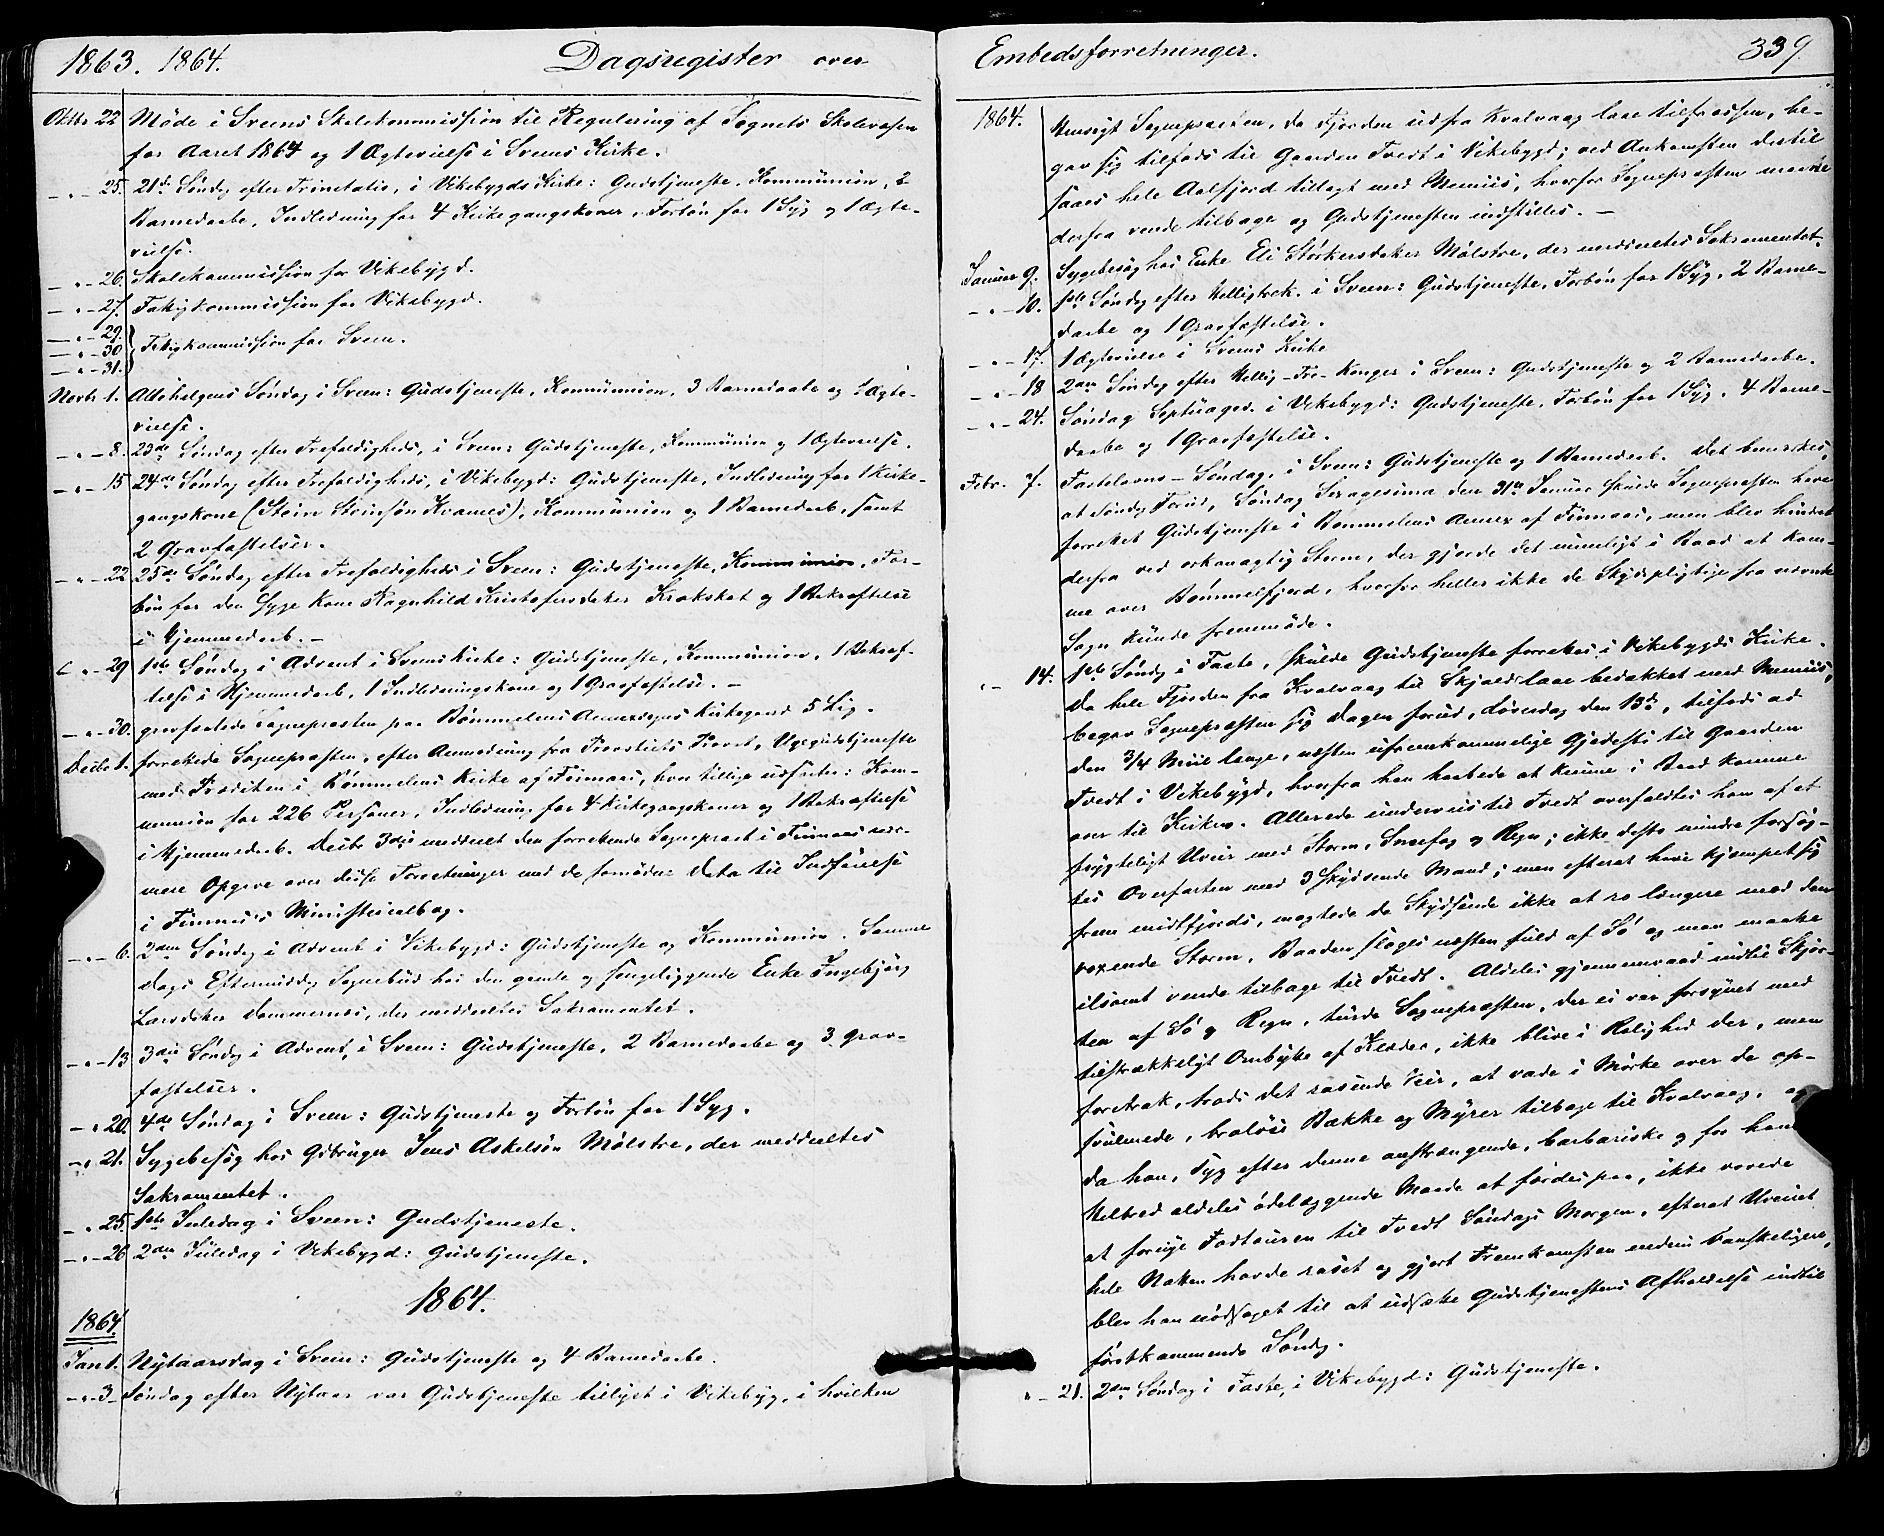 1863. 1864. Dagsregister over
Oktbr 22 Møde i Sveens Skolekommission til Regulering af Sognets Skolevæsen
for Aaret 1864 og 1 Ægtevielse i Sveens Kirke.
— „ — 25. 21de Søndag efter Trinitatis, i Vikebygds Kirke: Gudstjeneste, Kommunion, 2
Barnedaabe, Indledning for 4 Kirkegangskoner, Forbøn for 1 Syg og 1 Ægte-
vielse.
— „ — 26. Skolekommission for Vikebygd.
— „ — 27. Fattigkommission for Vikebygd.
— „ — 29.
— „ — 30 Fattigkommission for Sveen.
— „ — 31.
Novbr 1. Allehelgens Søndag i Sveen: Gudstjeneste, Kommunion, 3 Barnedaabe og 1 Ægte-
vielse.
— „ — 8. 23de Søndag efter Trefoldigheds, i Sveen: Gudstjeneste, Kommunion og 1 Ægtevielse.
— „ — 15 24de Søndag efter Trefoldigheds, i Vikebygd: Gudstjeneste, Indledning for 1 Kirke-
gangskone (Stein Steinsøn Kvames), Kommunion og 1 Barnedaab, samt
2 Gravfæstelser.
— „ — 22 25de Søndag efter Trefoldigheds i Sveen: Gudstjeneste, Kommunion, For-
bøn for den syge Kone Ragnhild Kristofersdatter Krokskot og 1 Bekræftelse
i Hjemmedaab. —
— „ — 29 1ste Søndag i Advent i Sveens Kirke: Gudstjeneste, Kommunion, 1 Bekræf-
telse i Hjemmedaab, 1 Indledningskone og 1 Gravfæstelse. —
— „ — 30. gravfæstede Sognepræsten paa Bømmelens Annexsogns Kirkegaard 5 Lig.
Decbr 1. forrettede Sognepræsten, efter Anmodning fra Provstiets Provst, Ugegudstjeneste
med Prædiken i Bømmelens Kirke af Finnaas, hvor tillige udførtes: Kom-
munion for 226 Personer, Indledning for 4 Kirkegangskoner og 1 Bekræftelse
i Hjemmedaab. Decbr 3die meddeelt den forrettende Sognepræst i Finnaas nær-
mere Opgave over disse Forretninger med de fornødne Data til Indførelse
i Finnaas's Ministerialbog.
— „ — 6. 2den Søndag i Advent i Vikebygd: Gudstjeneste og Kommunion. Samme
Dags Eftermiddag Sognebud hos den gamle og sengeliggende Enke Ingebjørg
Larsdatter Dommernes, der meddeeltes Sakramentet.
— „ — 13 3die Søndag i Advent, i Sveen: Gudstjeneste, 2 Barnedaabe og 3 Grav-
fæstelser.
— „ 20. 4de Søndag i Sveen: Gudstjeneste og Forbøn for 1 Syg.
— „ 21. Sygebesøg hos Gbruger Jens Askelsøn Mølstre, der meddeeltes
Sakramentet.
— „ 25. 1ste Juledag i Sveen: Gudstjeneste.
— „ — 26 2den Juledag i Vikebygd: Gudstjeneste.
1864.
1864
Jan 1. Nytaarsdag i Sveen: Gudstjeneste og 4 Barnedaabe.
— „ — 3 Søndag efter Nytaar var Gudstjeneste tillyst i Vikebygd, i hvilken
Embedsforretninger. 339.
1864. Hensigt Sognepræsten, da Fjorden udfra Kvalvaag laae tilfrossen, be-
gav sig tilfods til Gaarden Tvedt i Vikebygd; ved Ankomsten dertil
saaes hele Aalfjord tillagt med Meniis, hvorfor Sognepræsten maatte
derfra vende tilbage og Gudstjenesten indstilles. —
Januar 9. Sygebesøg hos Enke Eli Størkersdatter Mølstre, der meddeeltes Sakramentet.
— „ — 10. 1ste Søndag efter Helligtrek. i Sveen: Gudstjeneste, Forbøn for 1 Syg, 2 Barne-
daabe og 1 Gravfæstelse.
— „ — 17. 1 Ægtevielse i Sveens Kirke
— „ — 18 2den Søndag efter Hellig-Tre-Konger i Sveen: Gudstjeneste og 2 Barnedaabe.
— „ — 24. Søndag Septuages. i Vikebygd: Gudstjeneste, Forbøn for 1 Syg, 4 Barne-
daabe og 1 Gravfæstelse.
Febr. 7. Fastelavns-Søndag, i Sveen: Gudstjeneste og 1 Barnedaab. Det bemærkes,
at Søndag Forud, Søndag Sexagesima den 31te Januar skulde Sognepræsten have
forrettet Gudstjeneste i Bømmelens Annex af Finnaas, men blev hindret
derfra ved orkanagtig Storm, der gjorde det umueligt i Baad at kom-
me over Bømmelfjord, hvorfor heller ikke de Skydspligtige fra nævnte
Sogn kunde fremmøde.
„ — 14. 1ste Søndag i Faste, skulde Gudstjeneste forrettes i Vikebygds Kirke.
Da hele Fjorden fra Kvalvaag til Skjold laae bedækket med Meniis,
begav Sognepræsten sig Dagen forud, Løverdag den 13de, tilfods ad
den 3/4 Miil lange, næsten ufremkommelige Gjedesti til Gaarden
Tvedt i Vikebygd, hvorfra han haabede at kunne i Baad komme
over til Kirken. Allerede underveis til Tvedt overfaldtes han af et
frygteligt Uveir med Storm, Sneefog og Regn; ikke desto mindre forsøg-
tes Overfarten med 3 skydsende Mænd; men efterat have kjæmpet sig
frem midtfjords, magtede de Skydsende ikke at ro længere mod den
voxende Storm, Baaden sloges næsten fuld af Sø og man maatte
ilsomt vende tilbage til Tvedt. Aldeles gjennemvaad indtil Skjor-
ten af Sø og Regn, turde Sognepræsten, der ei var forsynet med
tilstrækkeligt Ombytte af Klæder, ikke blive i Rolighed der, men
foretrak, trods det rasende Veir, at vade i Mørke over de op-
svulmede, broløse Bække og Myrer tilbage til Kvalvaag, og
da han, syg efter denne anstrængende, barbariske og for hans
Helbred aldeles ødelæggende Maade at færdes paa, ikke vovede
at fornye Fodtouren til Tvedt Søndags Morgen, efterat Uveiret
hele Natten havde raset og gjort Fremkomsten endnu vanskeligere,
blev han nødsaget til at udsætte Gudstjenestens Afholdelse indtil
førstkommende Søndag.
„ — 21. 2den Søndag i Faste, i Vikebygd: Gudstjeneste.